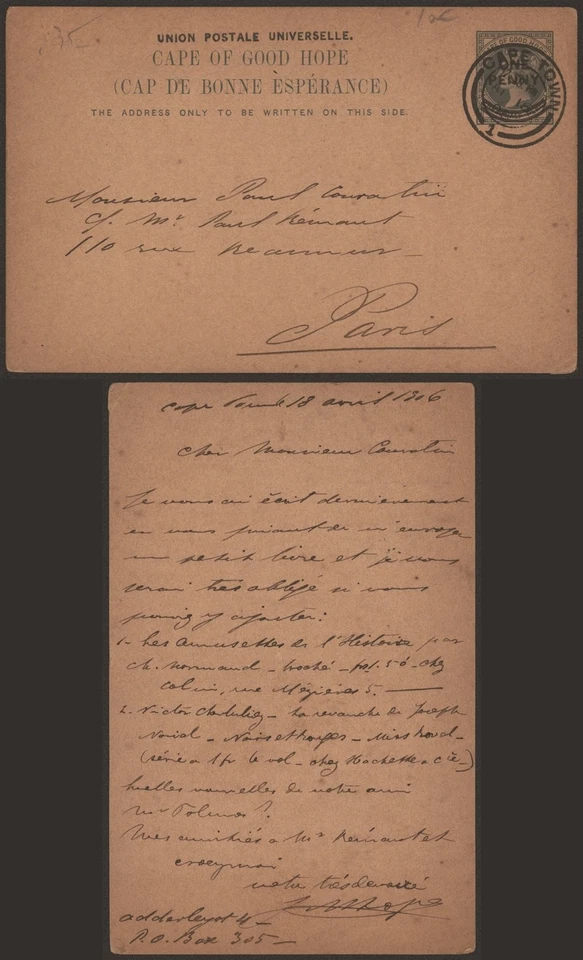 UNION POSTALE UNIVERSELLE.
CAPE OF GOOD HOPE
(CAP DE BONNE ESPÉRANCE)
THE ADDRESS ONLY TO BE WRITTEN ON THIS SIDE.
CAPE OF GOOD HOPE
ONE
PENNY
CAPE TOWN
1
Monsieur Paul Couratin
c/. Mr Paul Rémaut
110 rue Reaumur
Paris
Cape Town le 18 avril 1906
Cher Monsieur Couratin
Je vous ai écrit dernièrement
en vous priant de m'envoyer
un petit livre et je vous
serai très obligé si vous
pouvez y ajouter:
1- Les Amusettes de l'Histoire par
Ch. Normand - broché - 1.50 - chez
Colin, rue Mézières 5. —
2. Victor Cherbuliez - La revanche de Joseph
Noirel - Noirs et Rouges - Miss Rovel -
(série à 1fr le vol - chez Hachette & Cie -)
Quelles nouvelles de notre ami
Mr ?
Mes amitiés à Mr Rémaut et
croyez moi
votre très dévoué
Adderley st 4 -
P.O. Box 305 -